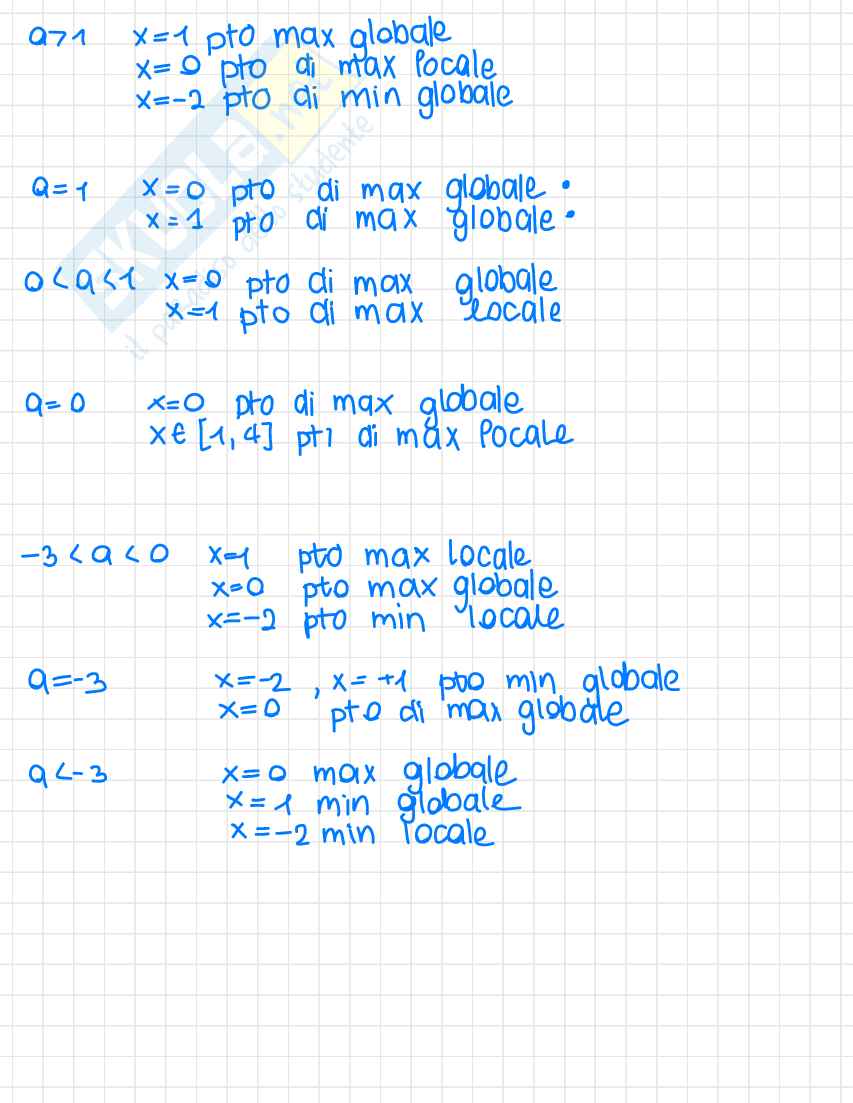 a>1 x=1 pto max globale
x=0 pto di max locale
x=-2 pto di min globale
a=1 x=0 pto di max globale •
x=1 pto di max globale •
0<a<1 x=0 pto di max globale
x=1 pto di max locale
a=0 x=0 pto di max globale
x∈[1,4] pti di max locale
-3<a<0 x=1 pto max locale
x=0 pto max globale
x=-2 pto min locale
a=-3 x=-2, x=+1 pto min globale
x=0 pto di max globale
a<-3 x=0 max globale
x=1 min globale
x=-2 min locale